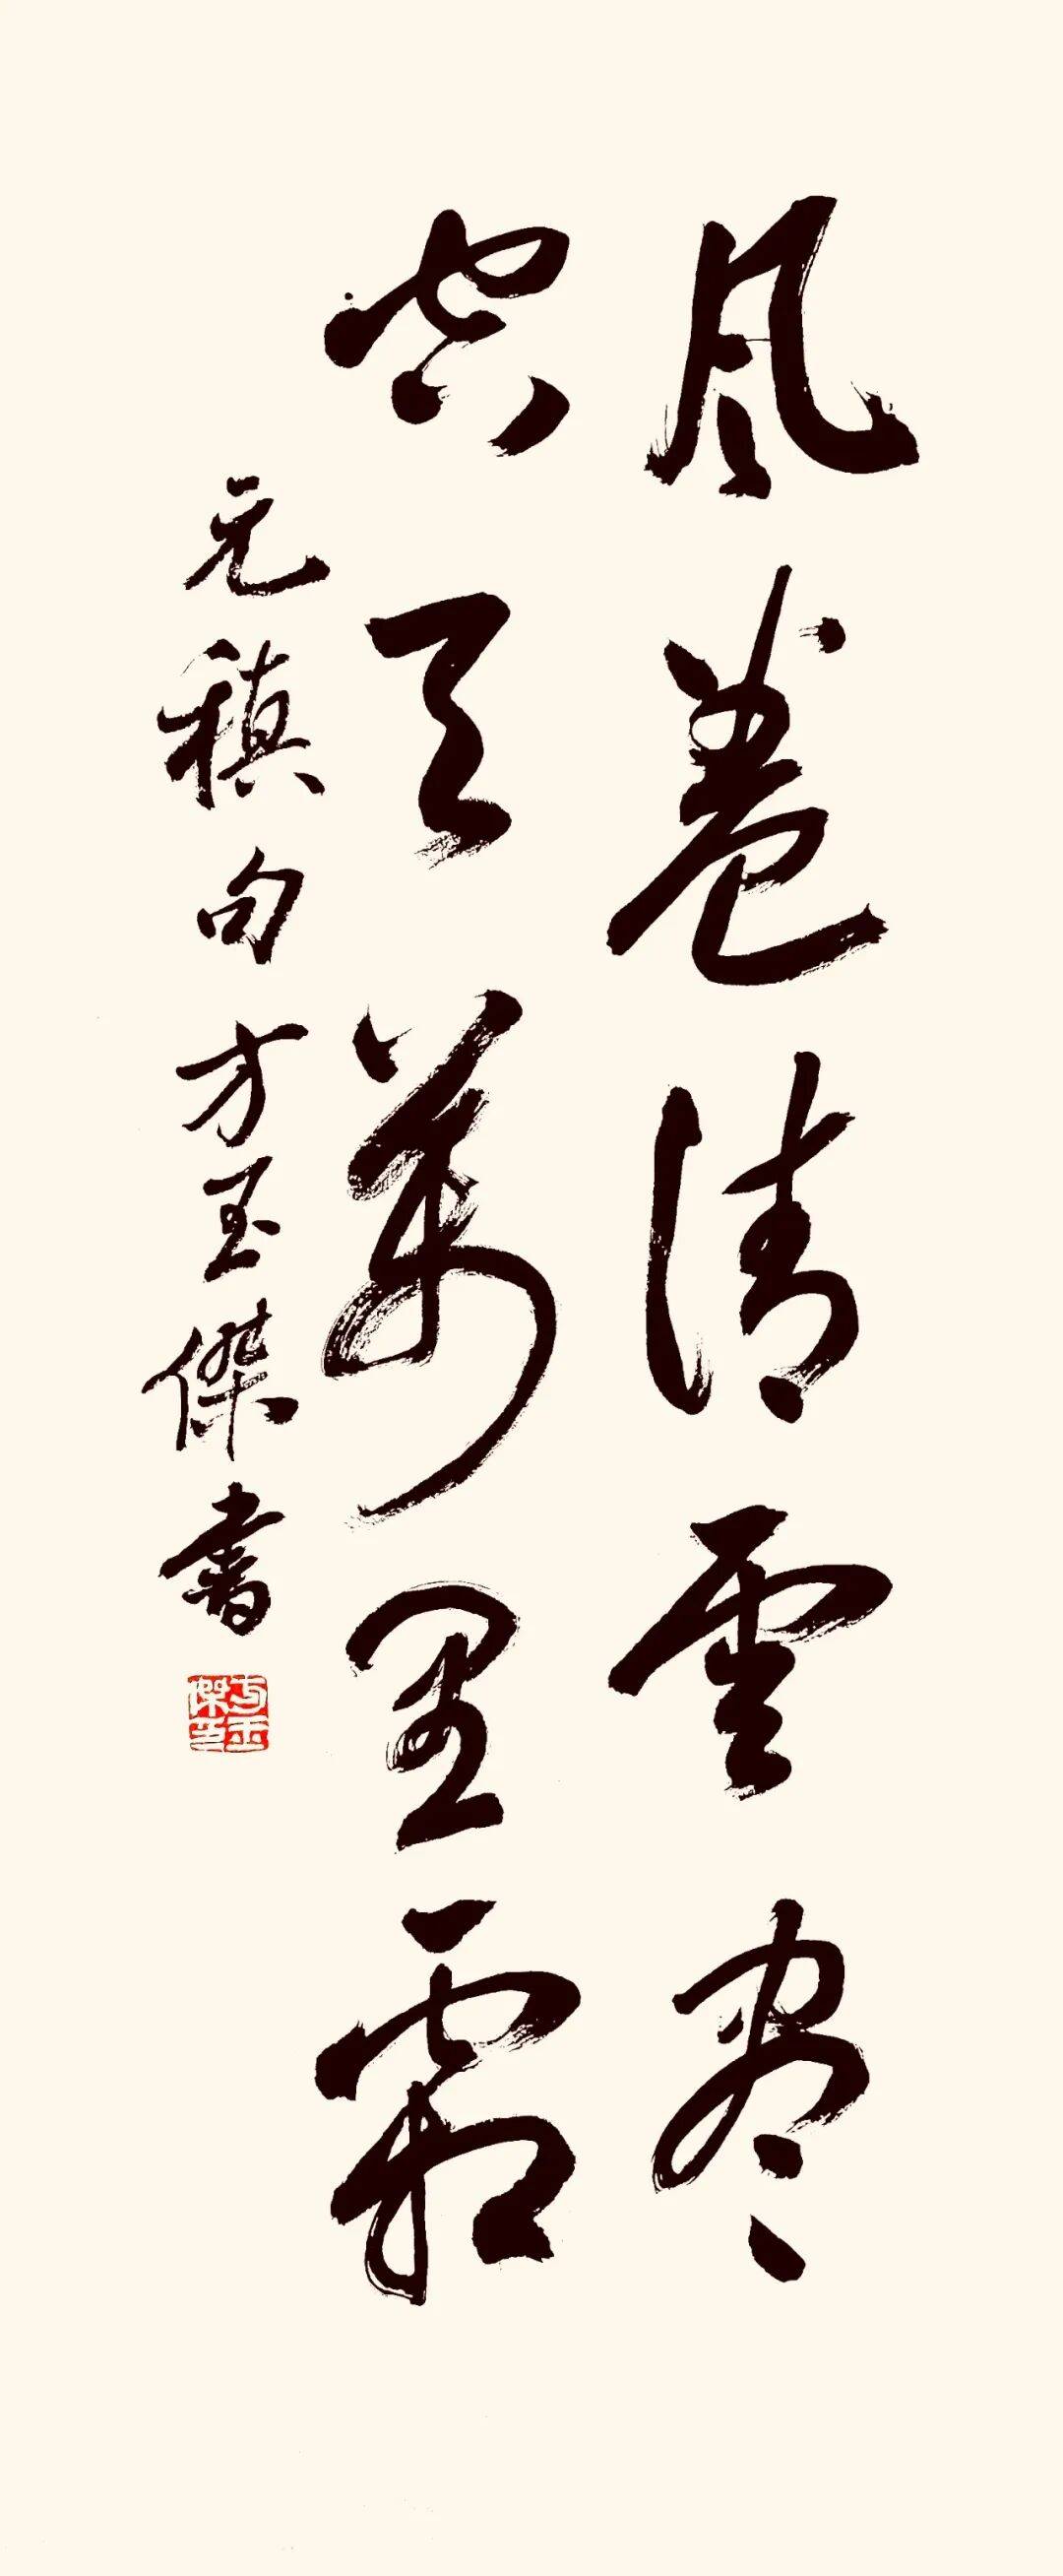 风卷清雲尽
空天萬里霜
元稹句方玉傑書
方玉傑印